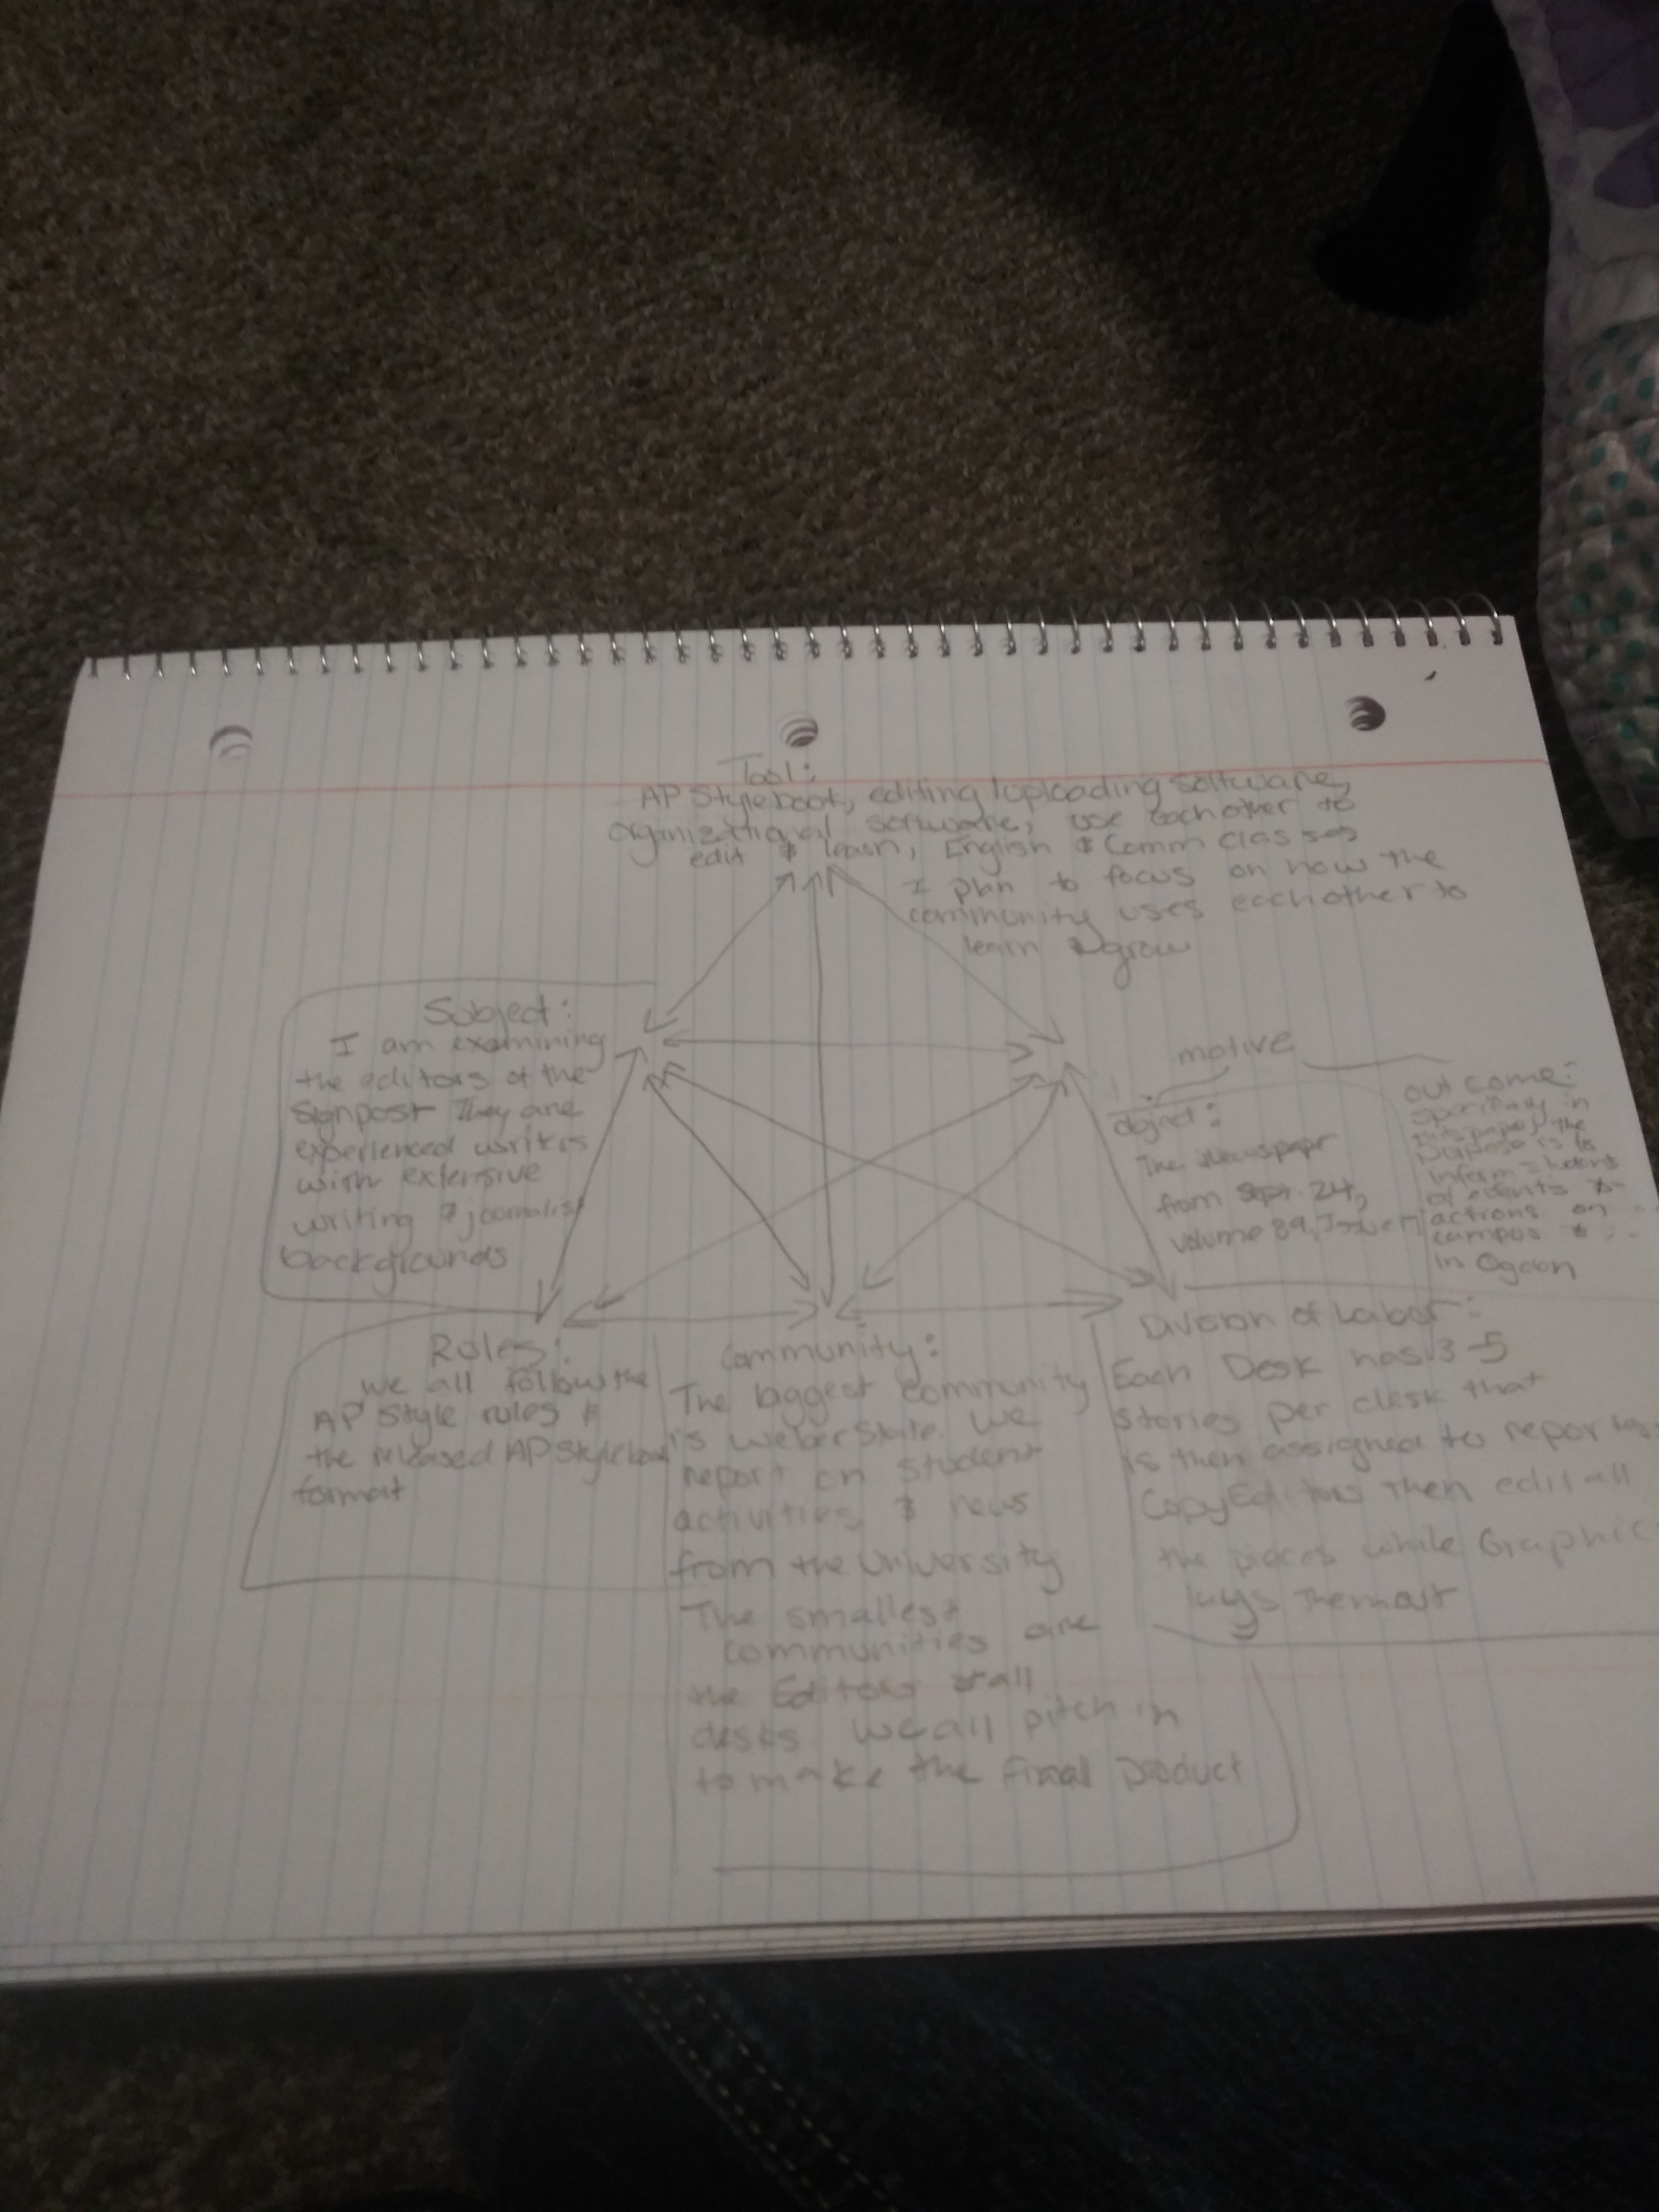 Tool:
AP Stylebook, editing/uploading software,
organizational software, use eachother to
edit & learn, English & Comm classes
I plan to focus on how the
community uses eachother to
learn & grow
Subject:
I am examining
the editors of the
signpost They are
experienced writers
with extensive
writing & journalist
backgrounds
motive
object:
The Newspaper
from Sept. 24,
volume 89, Issue
out come:
in
paper, the
purpose is to
inform
of events &
actions on
campus &
in Ogden
Rules:
we all follow the
AP Style rules &
the released AP Stylebook
format
Community:
The biggest community
is Weber State. We
report on student
activities & news
from the University.
The smallest
communities are
the Editors & all
desks. We all pitch in
to make the final product
Division of Labor:
Each Desk has 3-5
stories per desk that
is then assigned to reporters
CopyEditors Then edit all
the pieces while Graphics
lays Them out